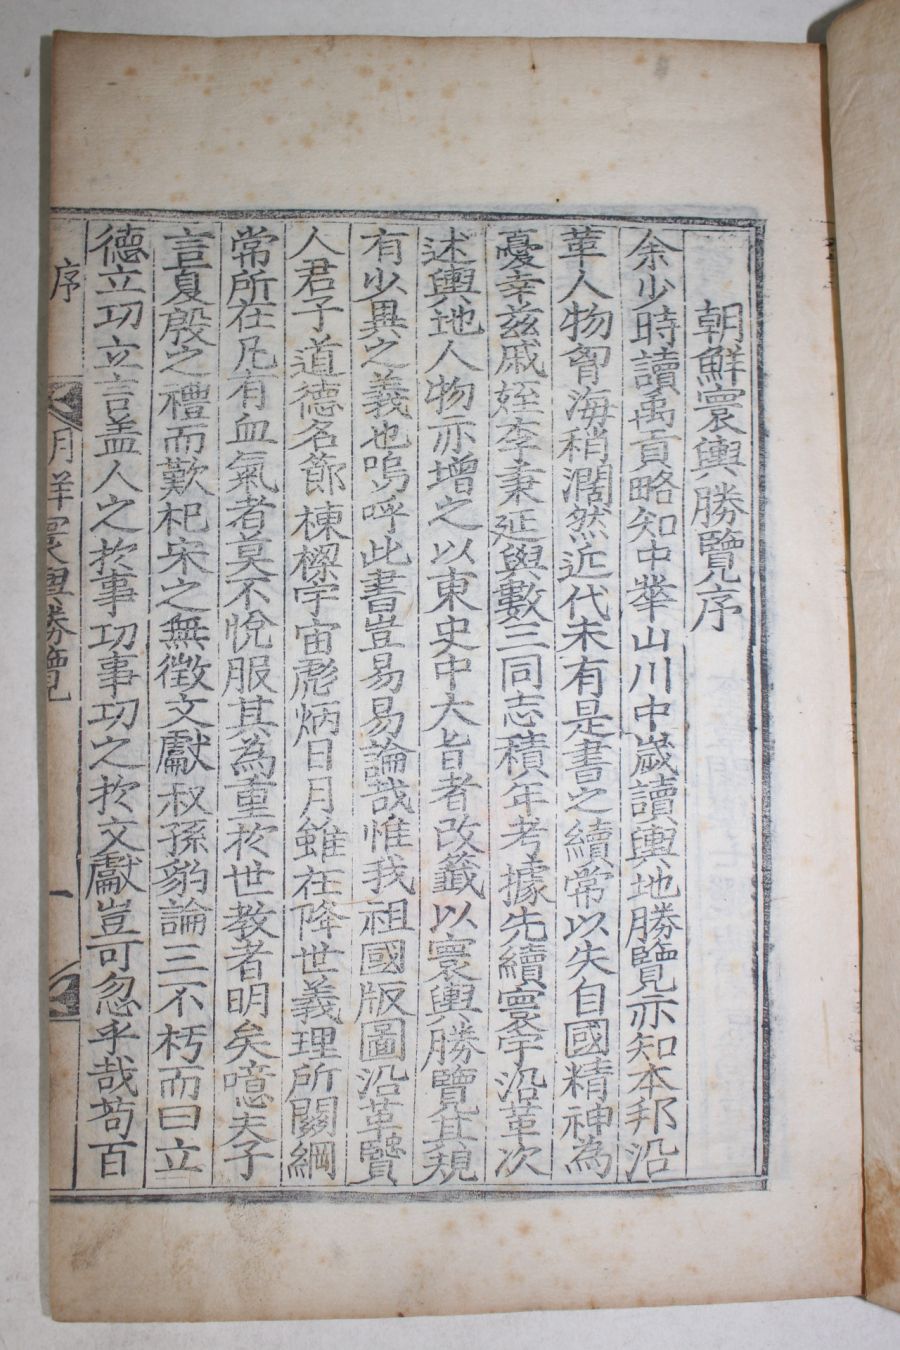 朝鮮寰輿勝覽序
余少時讀禹貢略知中華山川中嵗讀輿地勝覽亦知本邦沿
革人物胷海稍濶然近代未有是書之續常以失自國精神為
憂幸茲戚姪李秉延與數三同志積年考據先續寰宇沿革次
述輿地人物亦增之以東史中大旨者改籤以寰輿勝覽其規
有少異之義也嗚呼此書豈易易論哉惟我祖國版圖沿革賢
人君子道德名節棟樑宇宙彪炳日月雖在降世義理所關綱
常所在凡有血氣者莫不悅服其為重於世教者明矣噫夫子
言夏殷之禮而歎杞宋之無徵文獻叔孫豹論三不朽而曰立
德立功立言盖人之於事功事功之於文獻豈可忽乎哉苟百
序
朝鮮寰輿勝覽
一